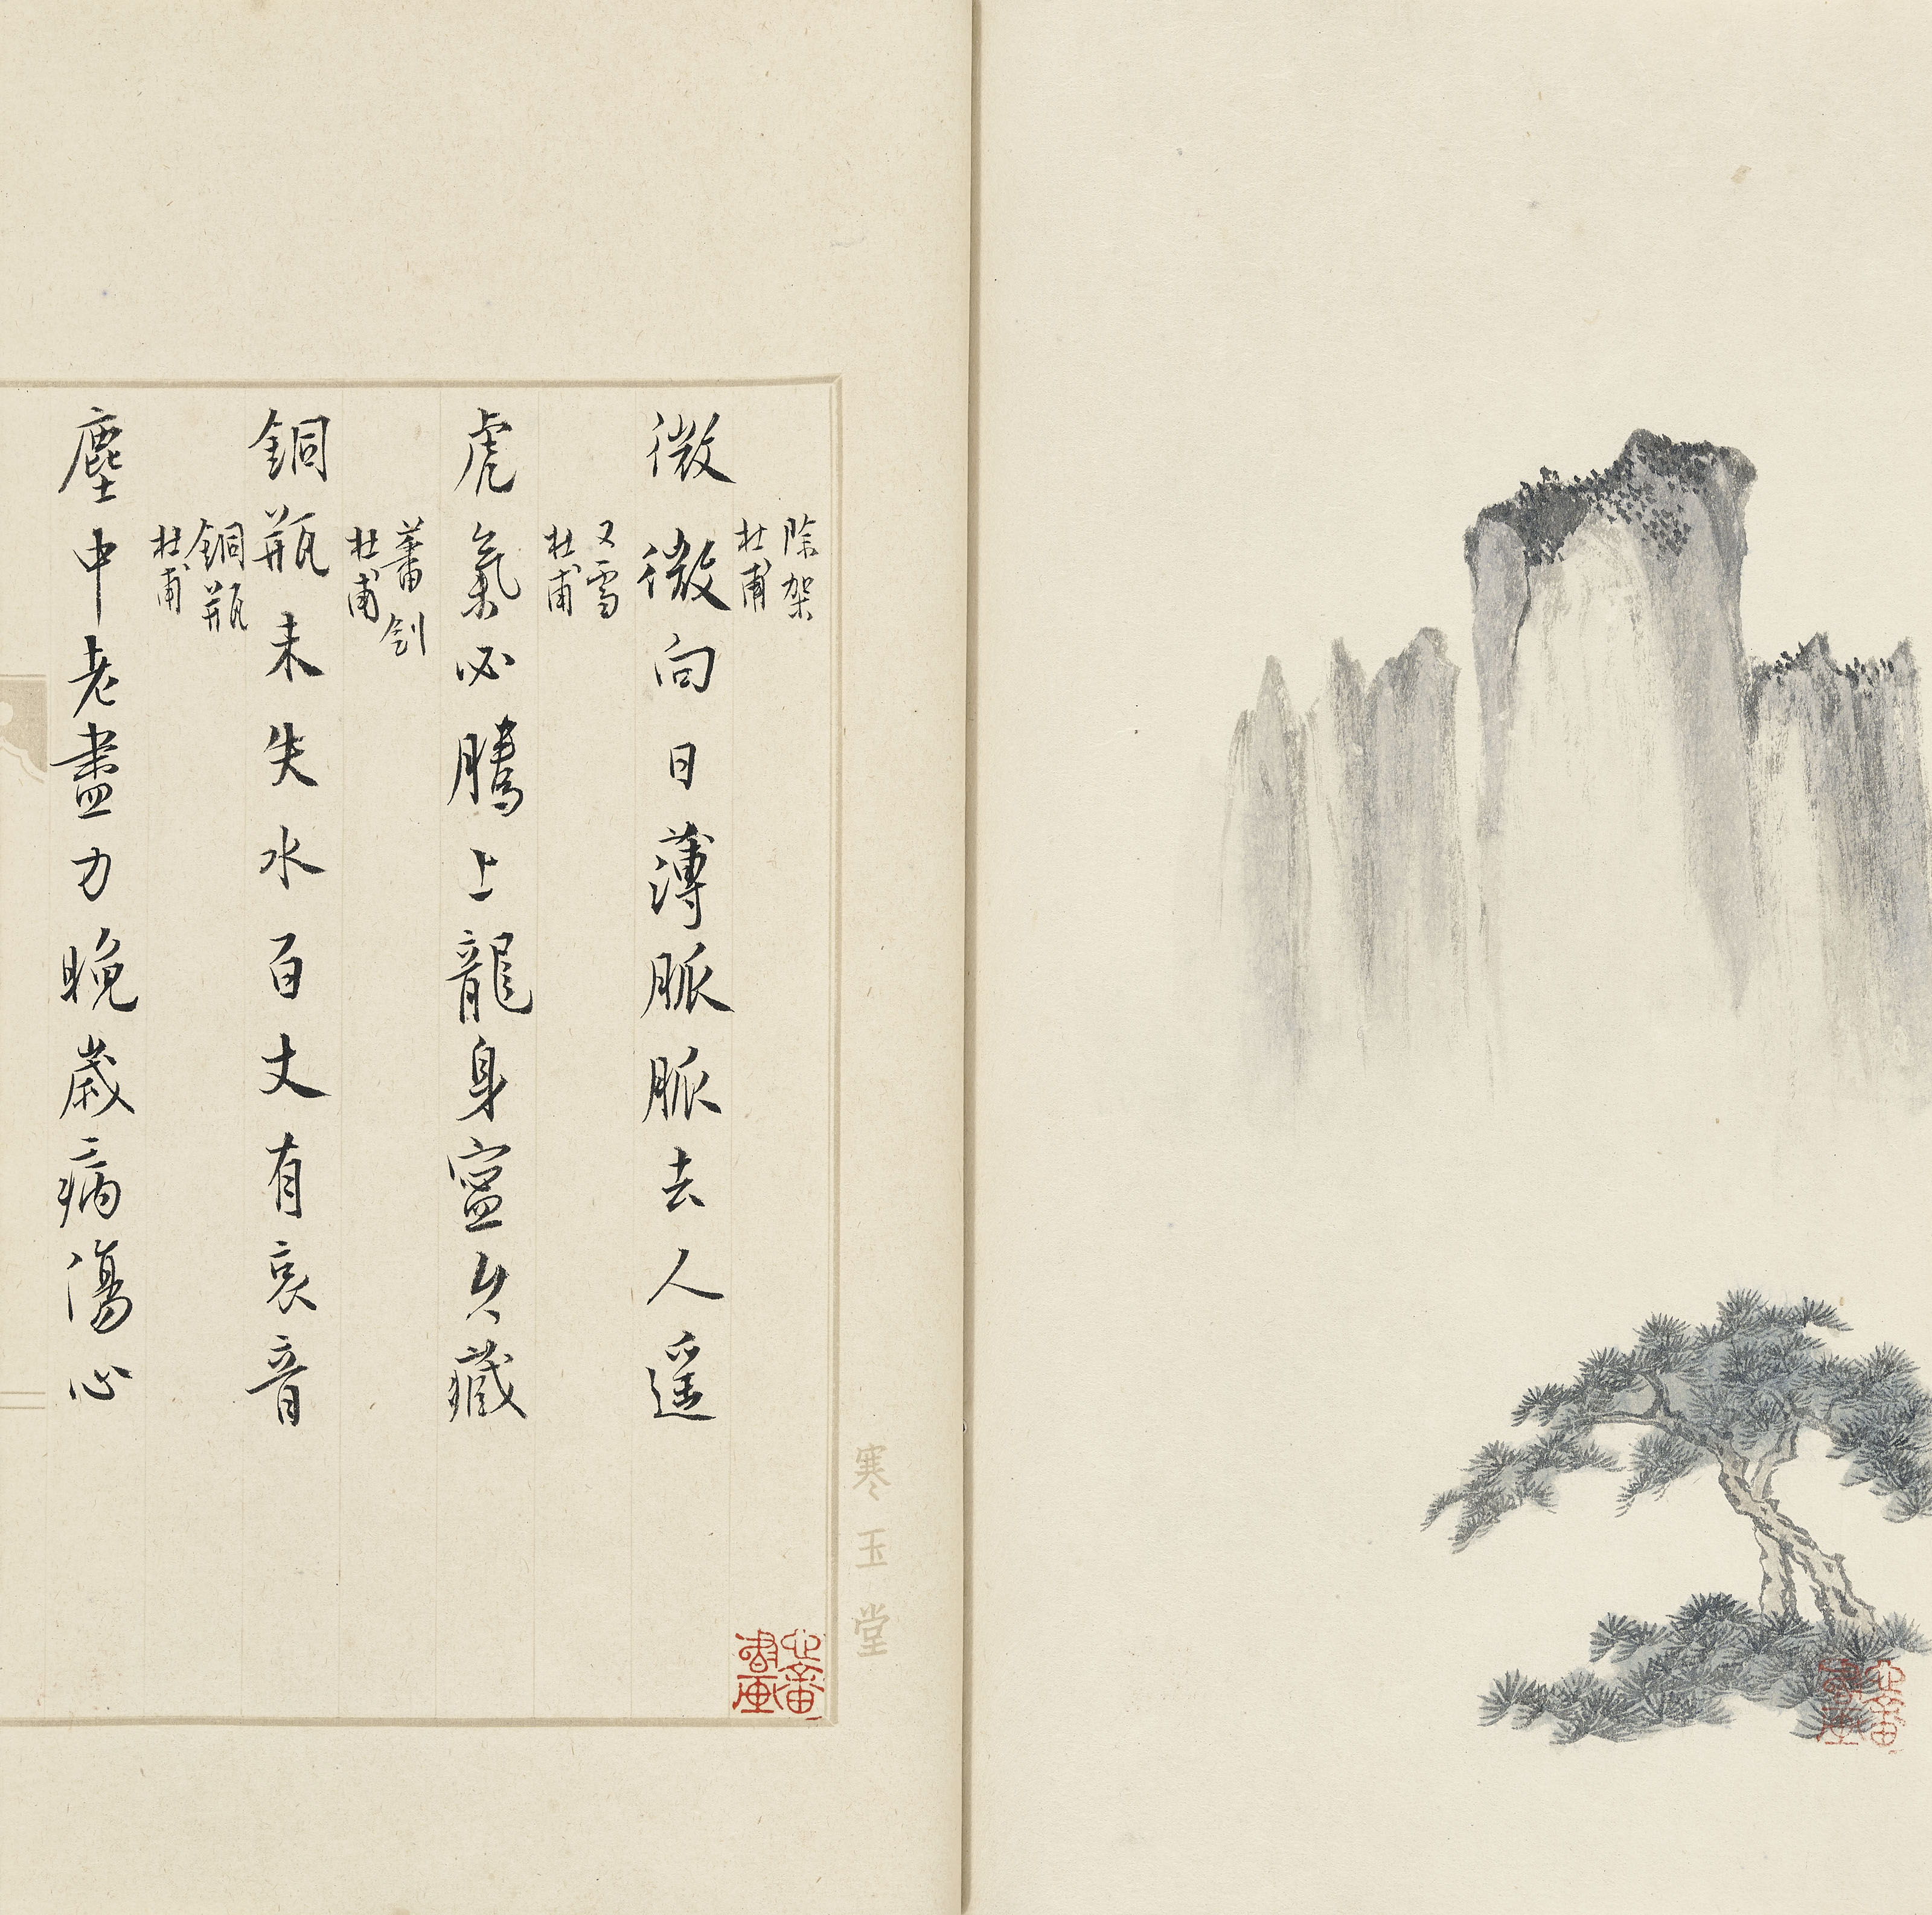 心畬書画
寒玉堂
心畬書画
除架
杜甫
微微向日薄脈脈去人遥
又雪
杜甫
虎氣必騰上龍身寍久藏
蕃劍
杜甫
銅瓶未失水百丈有哀音
銅瓶
杜甫
塵中老盡力晚歲病傷心